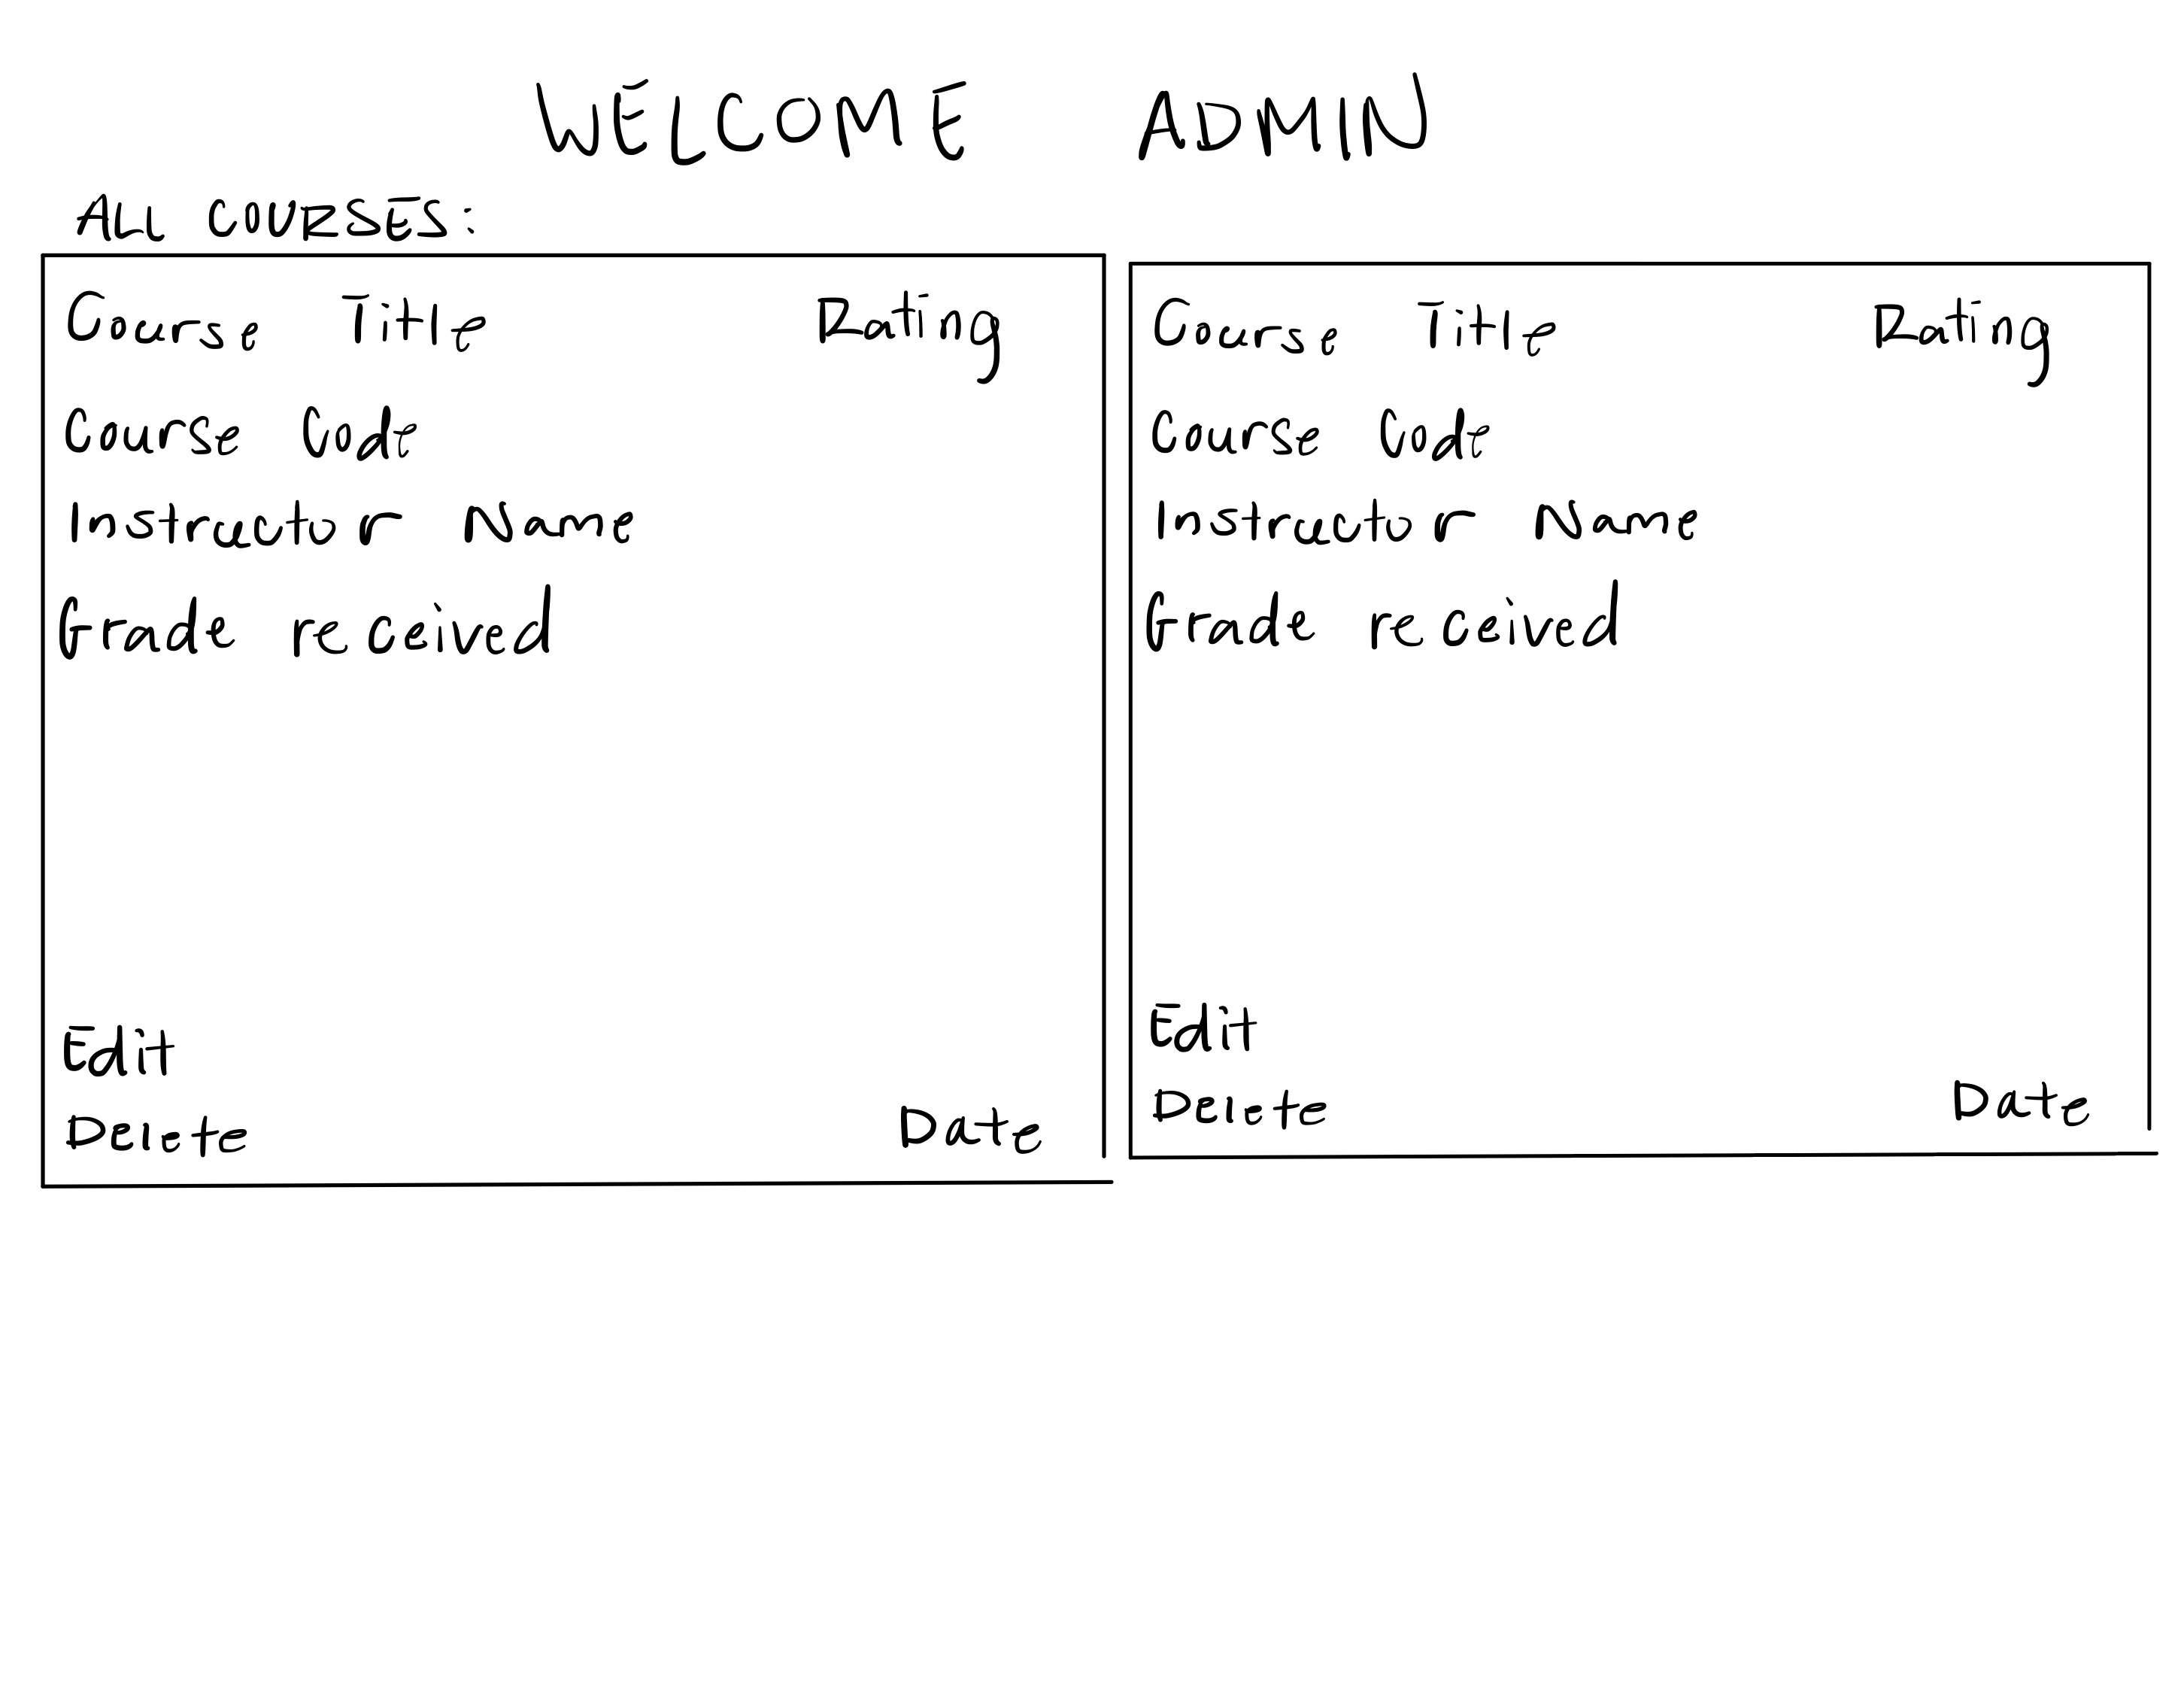 WELCOME ADMIN
ALL COURSES:
Course Title Rating
Course Code
Instructor Name
Grade received
Edit
Delete Date
Course Title Rating
Course Code
Instructor Name
Grade received
Edit
Delete Date